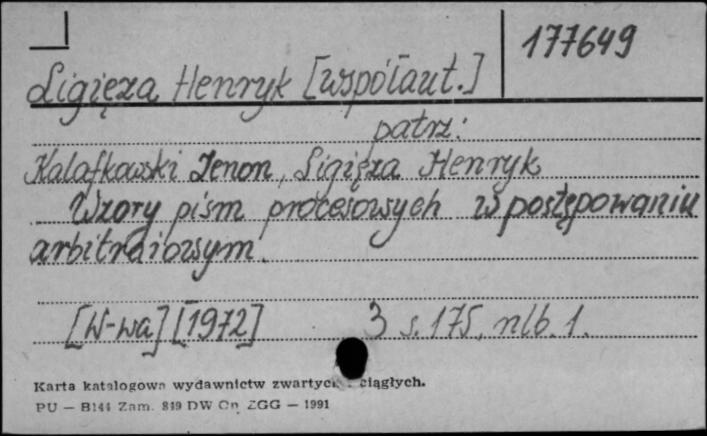 177649
Ligięza Henryk [współaut.]
patrz:
Kalafkowski Zenon, Ligięza Henryk
Wzory pism procesowych w postępowaniu
arbitrażowym.
[W-wa] [1972] 3 s. 175, nlb. 1.
Karta katalogowa wydawnictw zwartych ciągłych.
PU — B144 Zam. 849 DW Cn ZGG — 1991